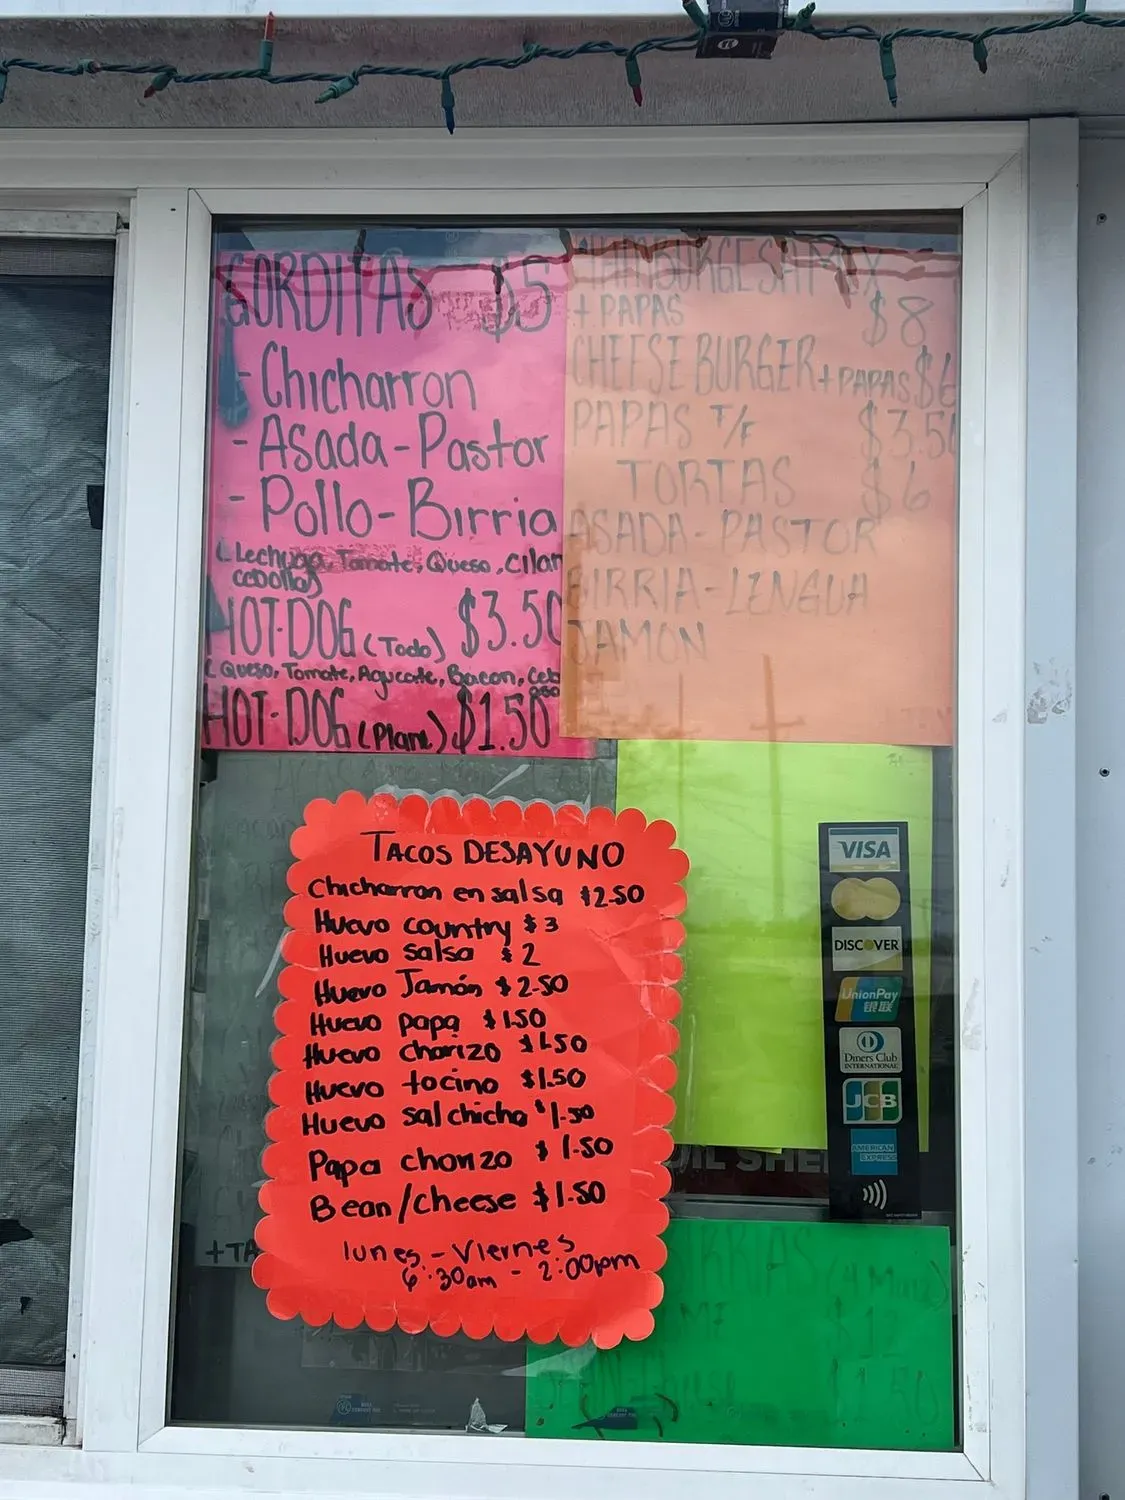 GORDITAS $5
- Chicharron
- Asada - Pastor
- Pollo - Birria
( Lechuga, Tomate, Queso, Cilan
cebolla)
HOT-DOG (Todo) $3.50
( Queso, Tomate, Agucate, Bacon, Ceb
HOT-DOG (Plane) $1.50
+ PAPAS $8
CHEESE BURGER + PAPAS $6
PAPAS T/F $3.50
TORTAS $6
ASADA - PASTOR
BIRRIA - LENGUA
JAMON
TACOS DESAYUNO
Chicharron en salsa $2.50
Huevo country $3
Huevo salsa $2
Huevo Jamón $2.50
Huevo papa $1.50
Huevo chorizo $1.50
Huevo tocino $1.50
Huevo salchicha $1.50
Papa chorizo $1.50
Bean/cheese $1.50
lunes - Viernes
6:30am - 2:00pm
VISA
DISCOVER
UnionPay
银联
Diners Club
INTERNATIONAL
JCB
AMERICAN
EXPRESS
+TA
$12